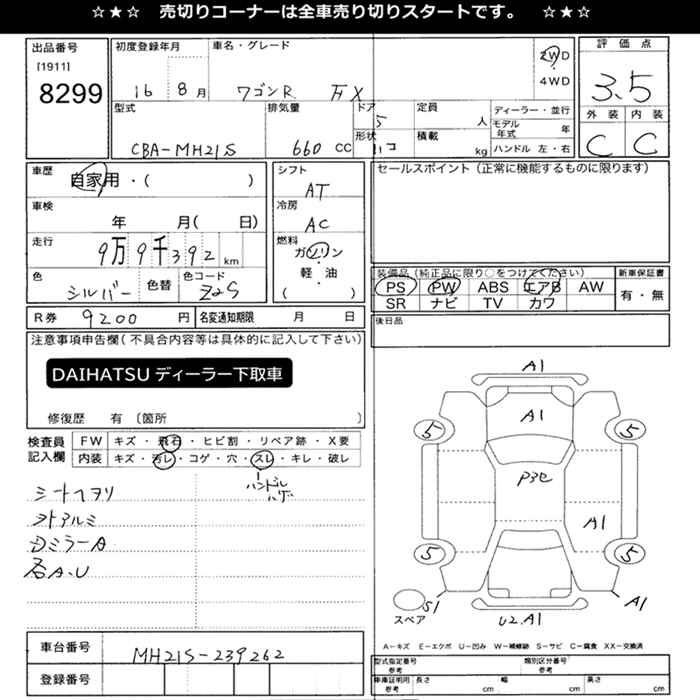 ☆★☆ 売切りコーナーは全車売り切りスタートです。 ☆★☆
出品番号
[1911]
8299
初度登録年月
16 8月
車名・グレード
ワゴンR FX
2WD
4WD
評価点
3.5
外装 内装
C C
型式
CBA-MH21S
排気量
660 CC
ドア
5
形状
定員
人
積載
kg
ディーラー・並行
モデル年式 年
ハンドル 左・右
車歴
自家用・( )
車検
年 月( 日)
走行
9万9千392 km
色
シルバー
色替
色コード
Z2S
シフト
AT
冷房
AC
燃料
ガソリン
・
軽・油
( )
セールスポイント (正常に機能するものに限ります)
装備品(純正品に限り○をつけてください)
PS PW ABS エアB AW
SR ナビ TV カワ
新車保証書
有・無
R券 9200 円
名変通知期限 月 日
後日品
注意事項申告欄(不具合内容等は具体的に記入して下さい)
DAIHATSU ディーラー下取車
修復歴 有 (箇所 )
検査員
記入欄
FW キズ・飛石・ヒビ割・リペア跡・X要
内装 キズ・汚レ・コゲ・穴・スレ・キレ・破レ
ハンドル
シートヘタリ
DミラーA
各A.U
A1
A1
5
5
A1
5
5
S1
スペア
U2.A1
A1
A-キズ E-エクボ U-凹み W-補修跡 S-サビ C-腐食 XX-交換済
車台番号
MH21S-239262
登録番号
型式指定番号
参考
類別区分番号
参考
車庫証明用
参考
長さ cm
幅 cm
高さ cm